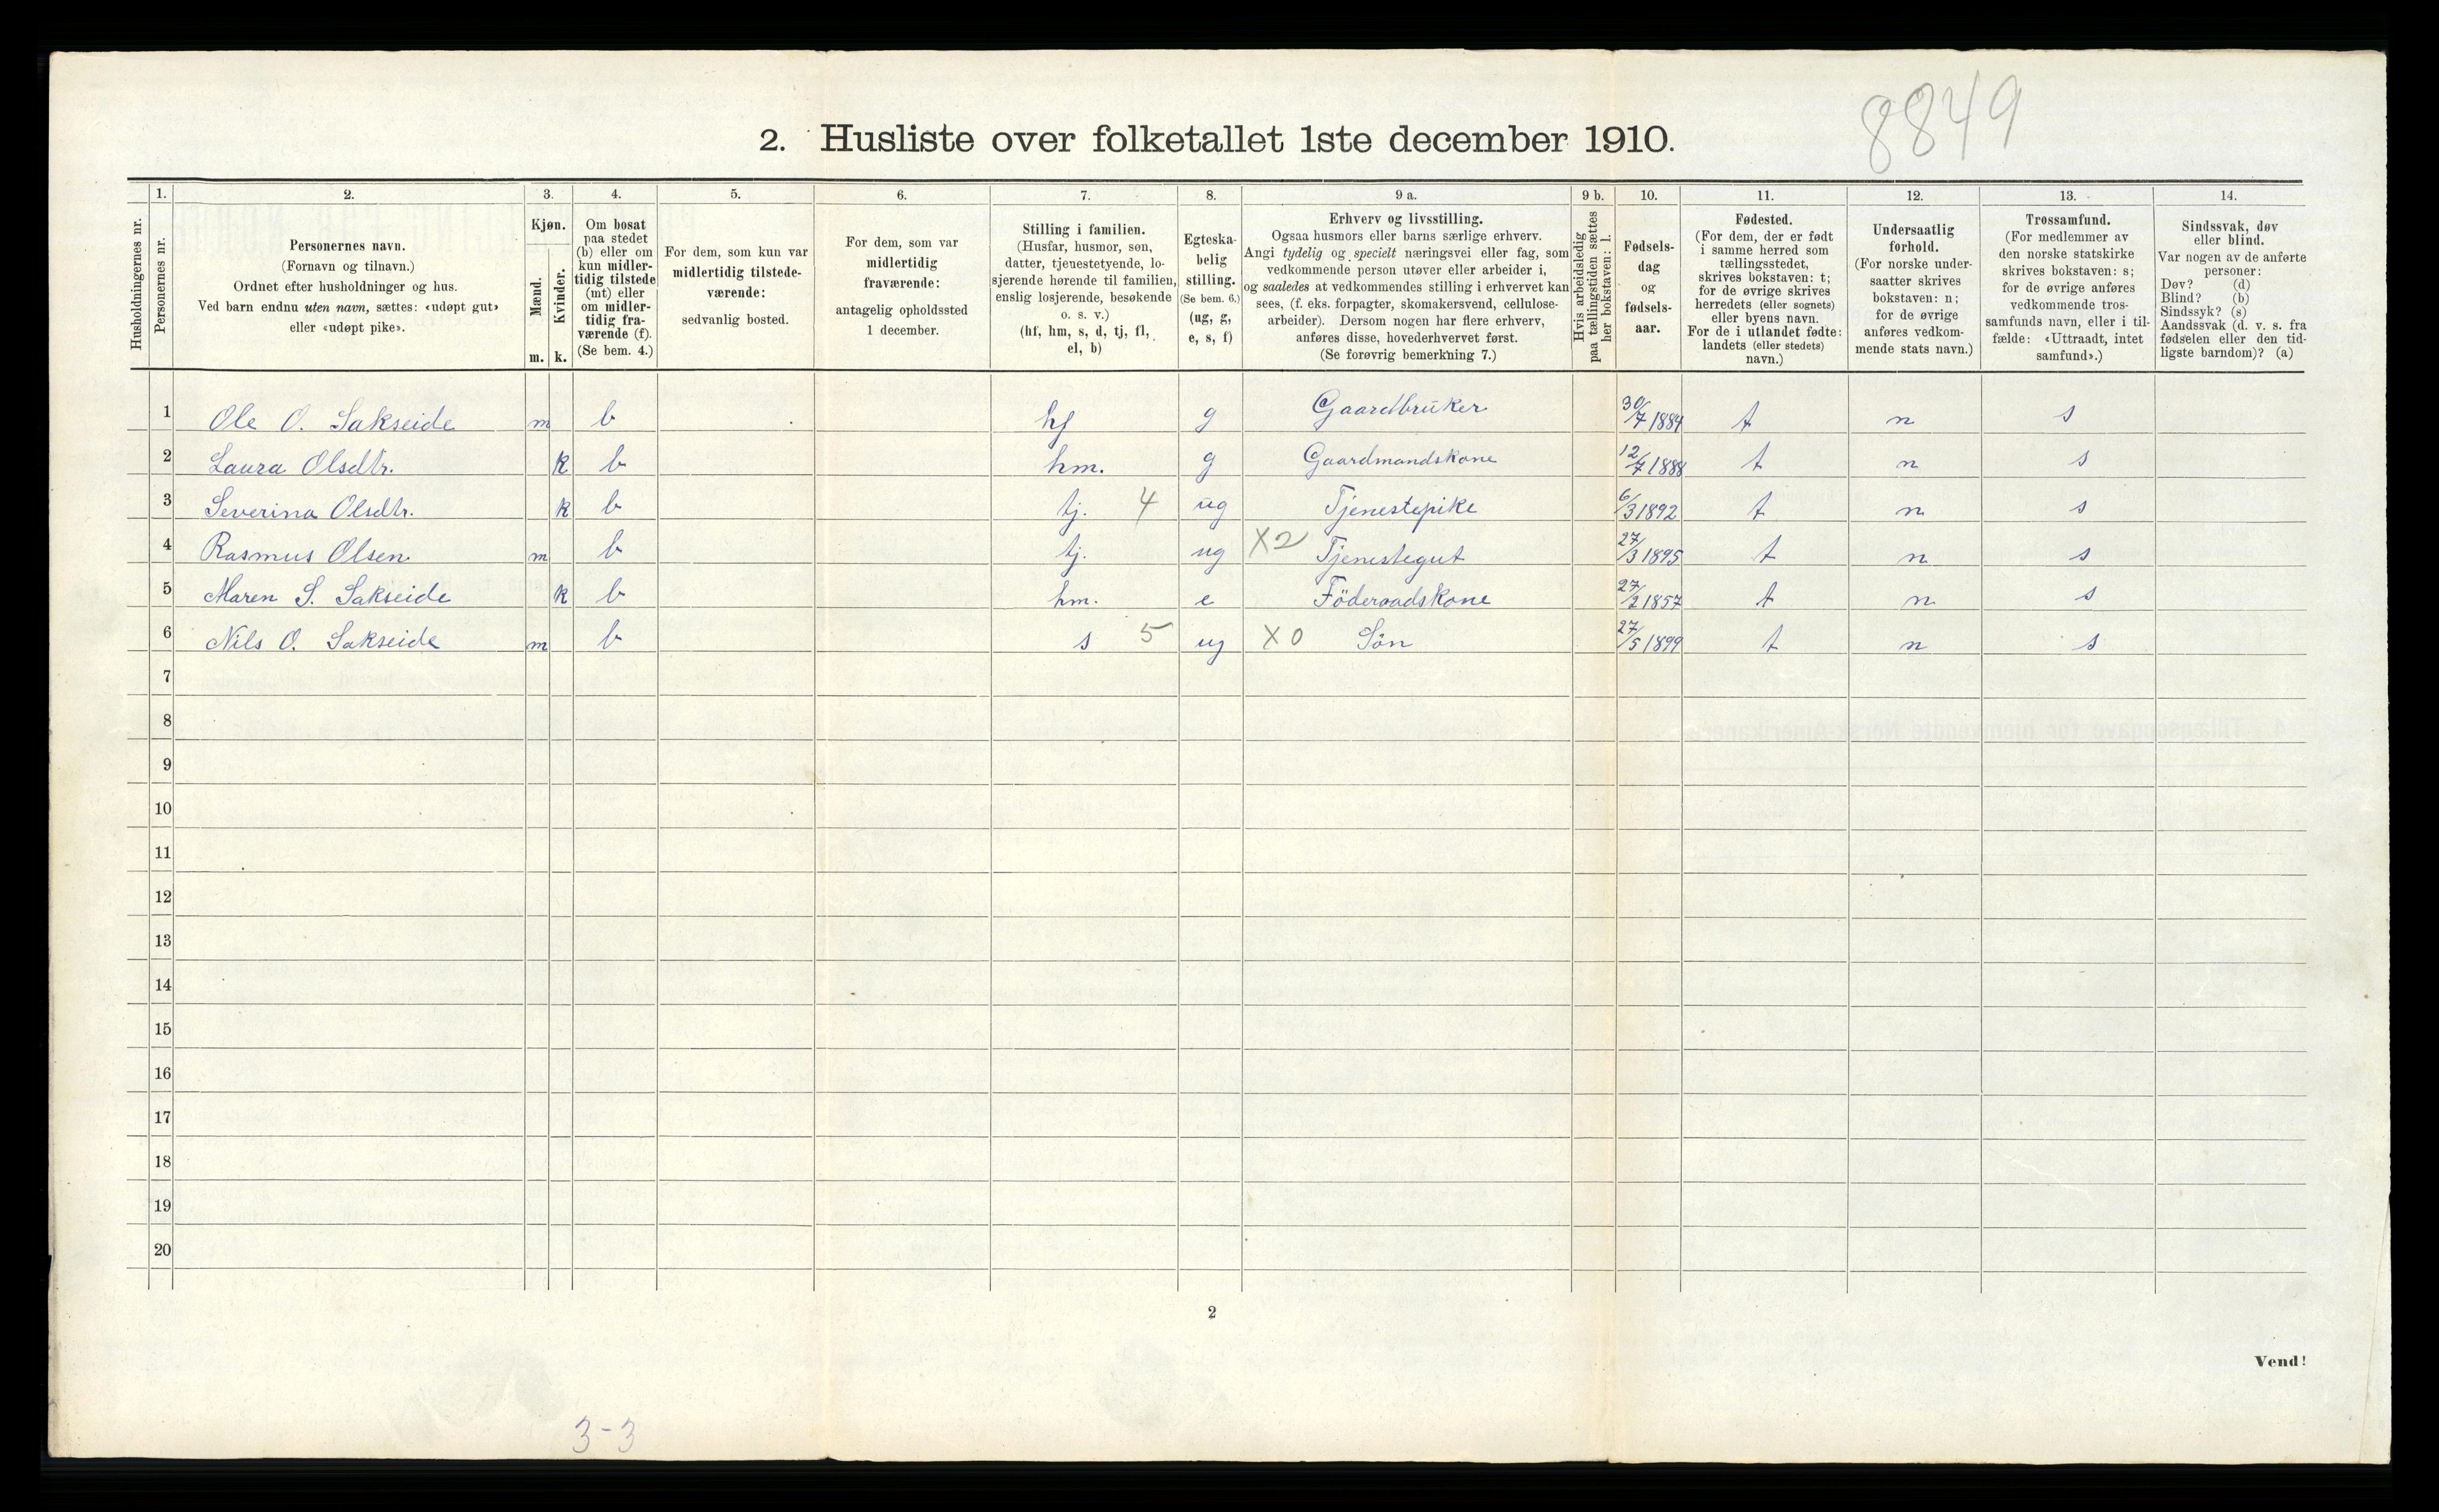 8849
2. Husliste over folketallet 1ste december 1910.
1. 2. 3. 4. 5. 6. 7. 8. 9 a. 9 b. 10. 11. 12. 13. 14.
Husholdningernes nr.
Personernes nr.
Personernes navn.
(Fornavn og tilnavn.)
Ordnet efter husholdninger og hus.
Ved barn endnu uten navn, sættes: «udøpt gut»
eller «udøpt pike».
Kjøn.
Mænd.
Kvinder.
m. k.
Om bosat
paa stedet
(b) eller om
kun midler-
tidig tilstede
(mt) eller
om midler-
tidig fra-
værende (f).
(Se bem. 4.)
For dem, som kun var
midlertidig tilstede-
værende:
sedvanlig bosted.
For dem, som var
midlertidig
fraværende:
antagelig opholdssted
1 december.
Stilling i familien.
(Husfar, husmor, søn,
datter, tjenestetyende, lo-
sjerende hørende til familien,
enslig losjerende, besøkende
o. s. v.)
(hf, hm, s, d, tj, fl,
el, b)
Egteska-
belig
stilling.
(Se bem. 6.)
(ug, g,
e, s, f)
Erhverv og livsstilling.
Ogsaa husmors eller barns særlige erhverv.
Angi tydelig og specielt næringsvei eller fag, som
vedkommende person utøver eller arbeider i,
og saaledes at vedkommendes stilling i erhvervet kan
sees, (f. eks. forpagter, skomakersvend, cellulose-
arbeider). Dersom nogen har flere erhverv,
anføres disse, hovederhvervet først.
(Se forøvrig bemerkning 7.)
Hvis arbeidsledig
paa tællingstiden sættes
her bokstaven: l.
Fødsels-
dag
og
fødsels-
aar.
Fødested.
(For dem, der er født
i samme herred som
tællingsstedet,
skrives bokstaven: t;
for de øvrige skrives
herredets (eller sognets)
eller byens navn.
For de i utlandet fødte:
landets (eller stedets)
navn.)
Undersaatlig
forhold.
(For norske under-
saatter skrives
bokstaven: n;
for de øvrige
anføres vedkom-
mende stats navn.)
Trossamfund.
(For medlemmer av
den norske statskirke
skrives bokstaven: s;
for de øvrige anføres
vedkommende tros-
samfunds navn, eller i til-
fælde: «Uttraadt, intet
samfund».)
Sindssvak, døv
eller blind.
Var nogen av de anførte
personer:
Døv? (d)
Blind? (b)
Sindssyk? (s)
Aandssvak (d. v. s. fra
fødselen eller den tid-
ligste barndom)? (a)
1 Ole O. Sakseide m b hf g Gaardbruker 30/7 1884 t n s
2 Laura Olsdtr. k b hm. g Gaardmandskone 12/7 1888 t n s
3 Severina Olsdtr. k b tj. 4 ug Tjenestepike 6/3 1892 t n s
4 Rasmus Olsen m b tj. ug X2 Tjenestegut 27/3 1895 t n s
5 Maren S. Sakseide k b hm. e Föderaadskone 27/2 1857 t n s
6 Nils O. Sakseide m b s 5 ug X0 Sön 27/5 1899 t n s
7
8
9
10
11
12
13
14
15
16
17
18
19
20
2
Vend!
3-3